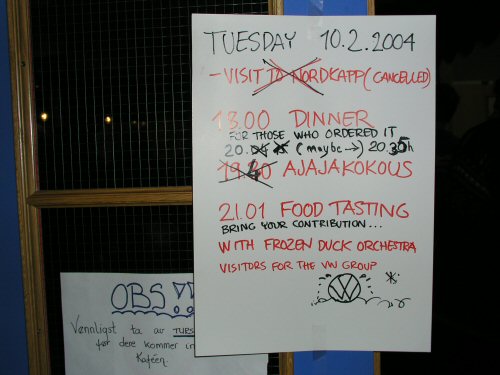 TUESDAY 10.2.2004
- VISIT TO NORDKAPP (CANCELLED)
18.00 DINNER
FOR THOSE WHO ORDERED IT
20. (maybe →) 20.35h
19.40 AJAJAKOKOUS
21.01 FOOD TASTING
BRING YOUR CONTRIBUTION...
WITH FROZEN DUCK ORCHESTRA
VISITORS FOR THE VW GROUP
VW
OBS!!
Vennligst ta av
før dere kommer in
Kaféen